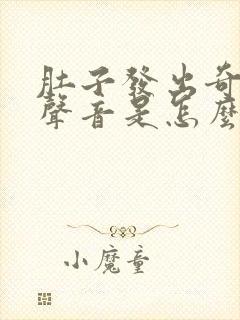 肚子發出奇
聲音是怎麼
小魔童